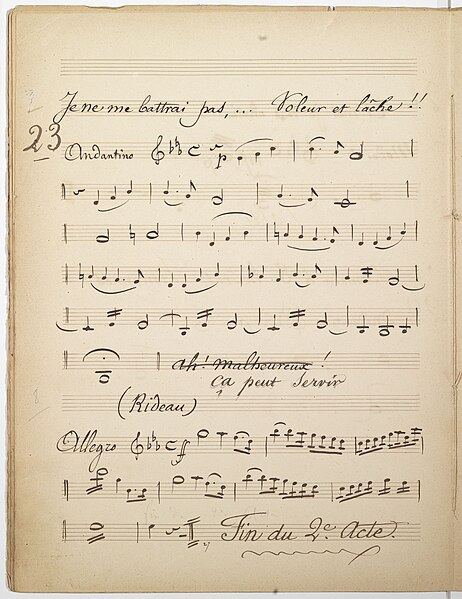 Je ne me battrai pas, ... Voleur et lâche !!
23
Andantino
p
ah! malheureux !
ça peut servir
(Rideau)
Allegro ff
Fin du 2e Acte.